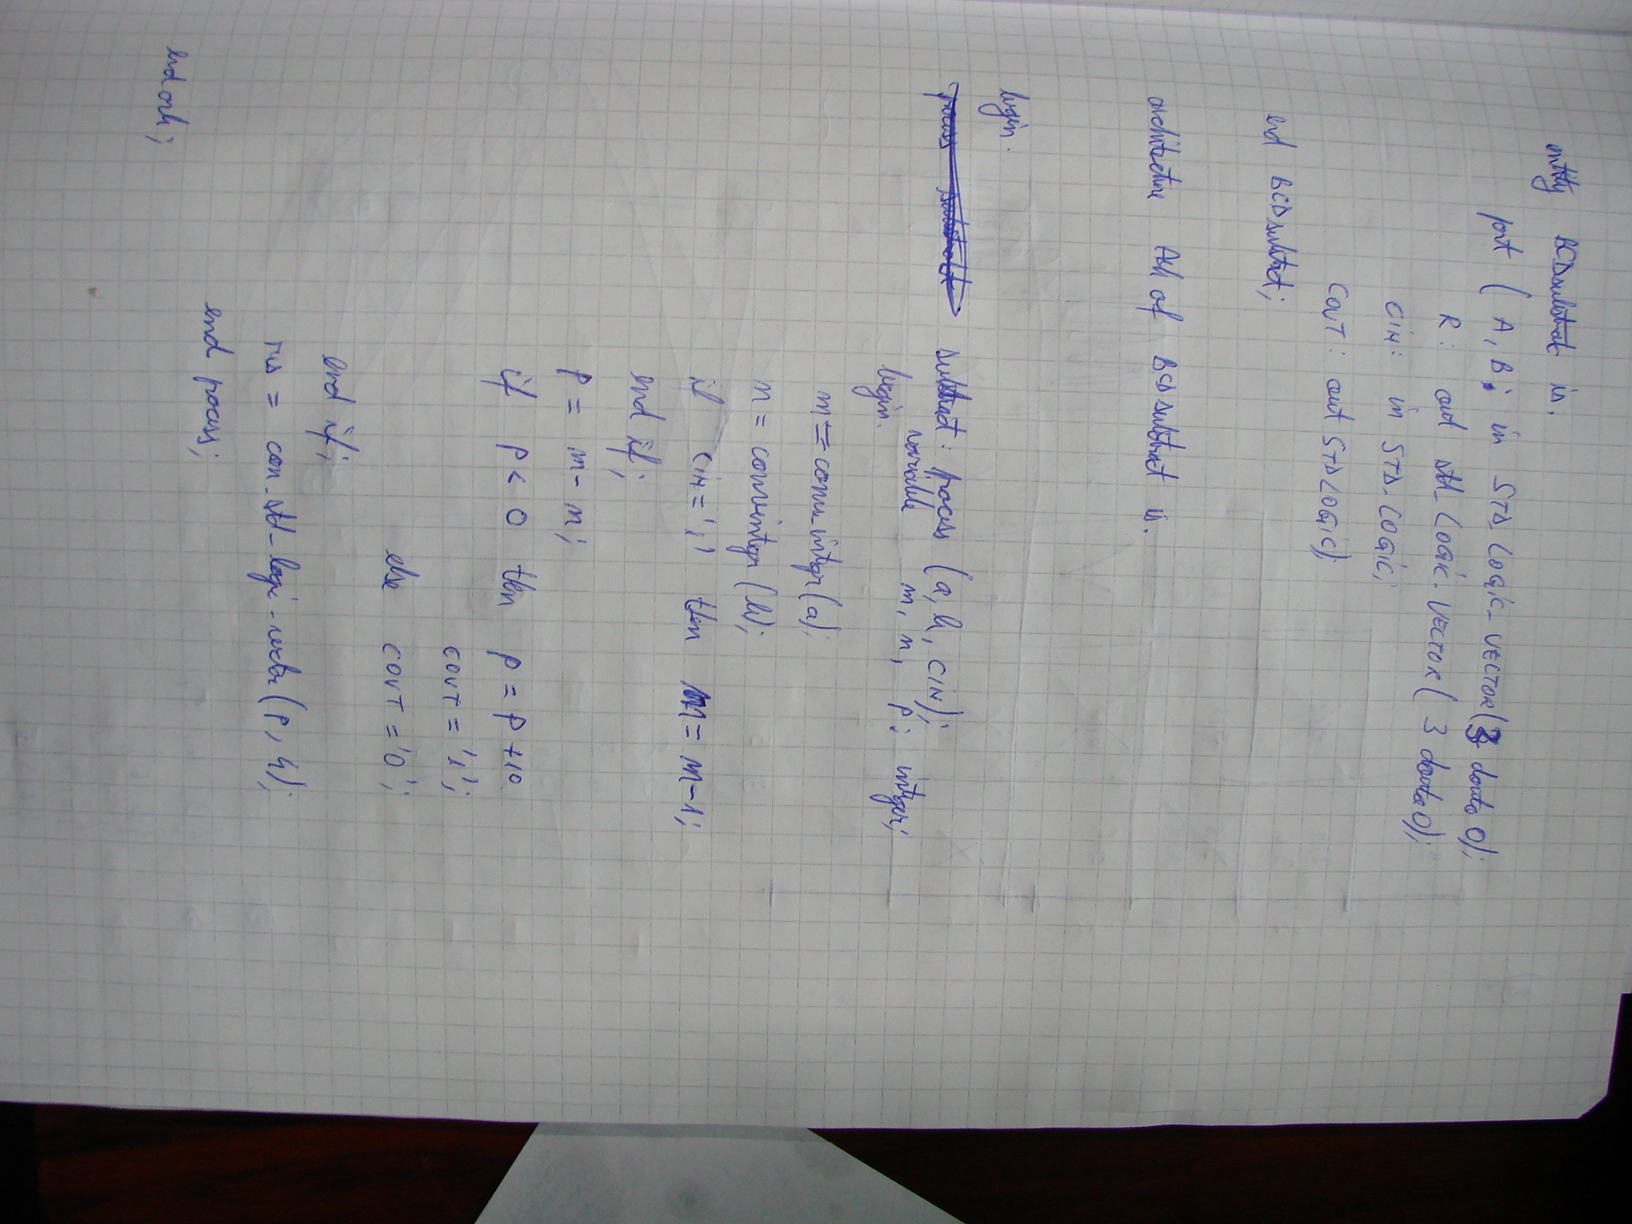 entity BCDsubstract is.
port ( A, B: in STD LOGIC_VECTOR(3 downto 0);
R: out std_LOGIC_VECTOR( 3 downto 0);
CIN: in STD_LOGIC;
COUT: out STD LOGIC)
end BCDsubstract;
architecture Arh of BCDsubstract is.
begin.
substract: process (a, b, CIN);
variable m, n, p: integer;
begin.
m = conv_integer(a);
n = conv integer(b);
if CIN = '1' then m = m-1;
end if;
p = m - n;
if p < 0 then p = p +10
COUT = '1';
else COUT = '0';
end if;
rez = con_std_logic_vector(p, 4);
end process;
end arh;